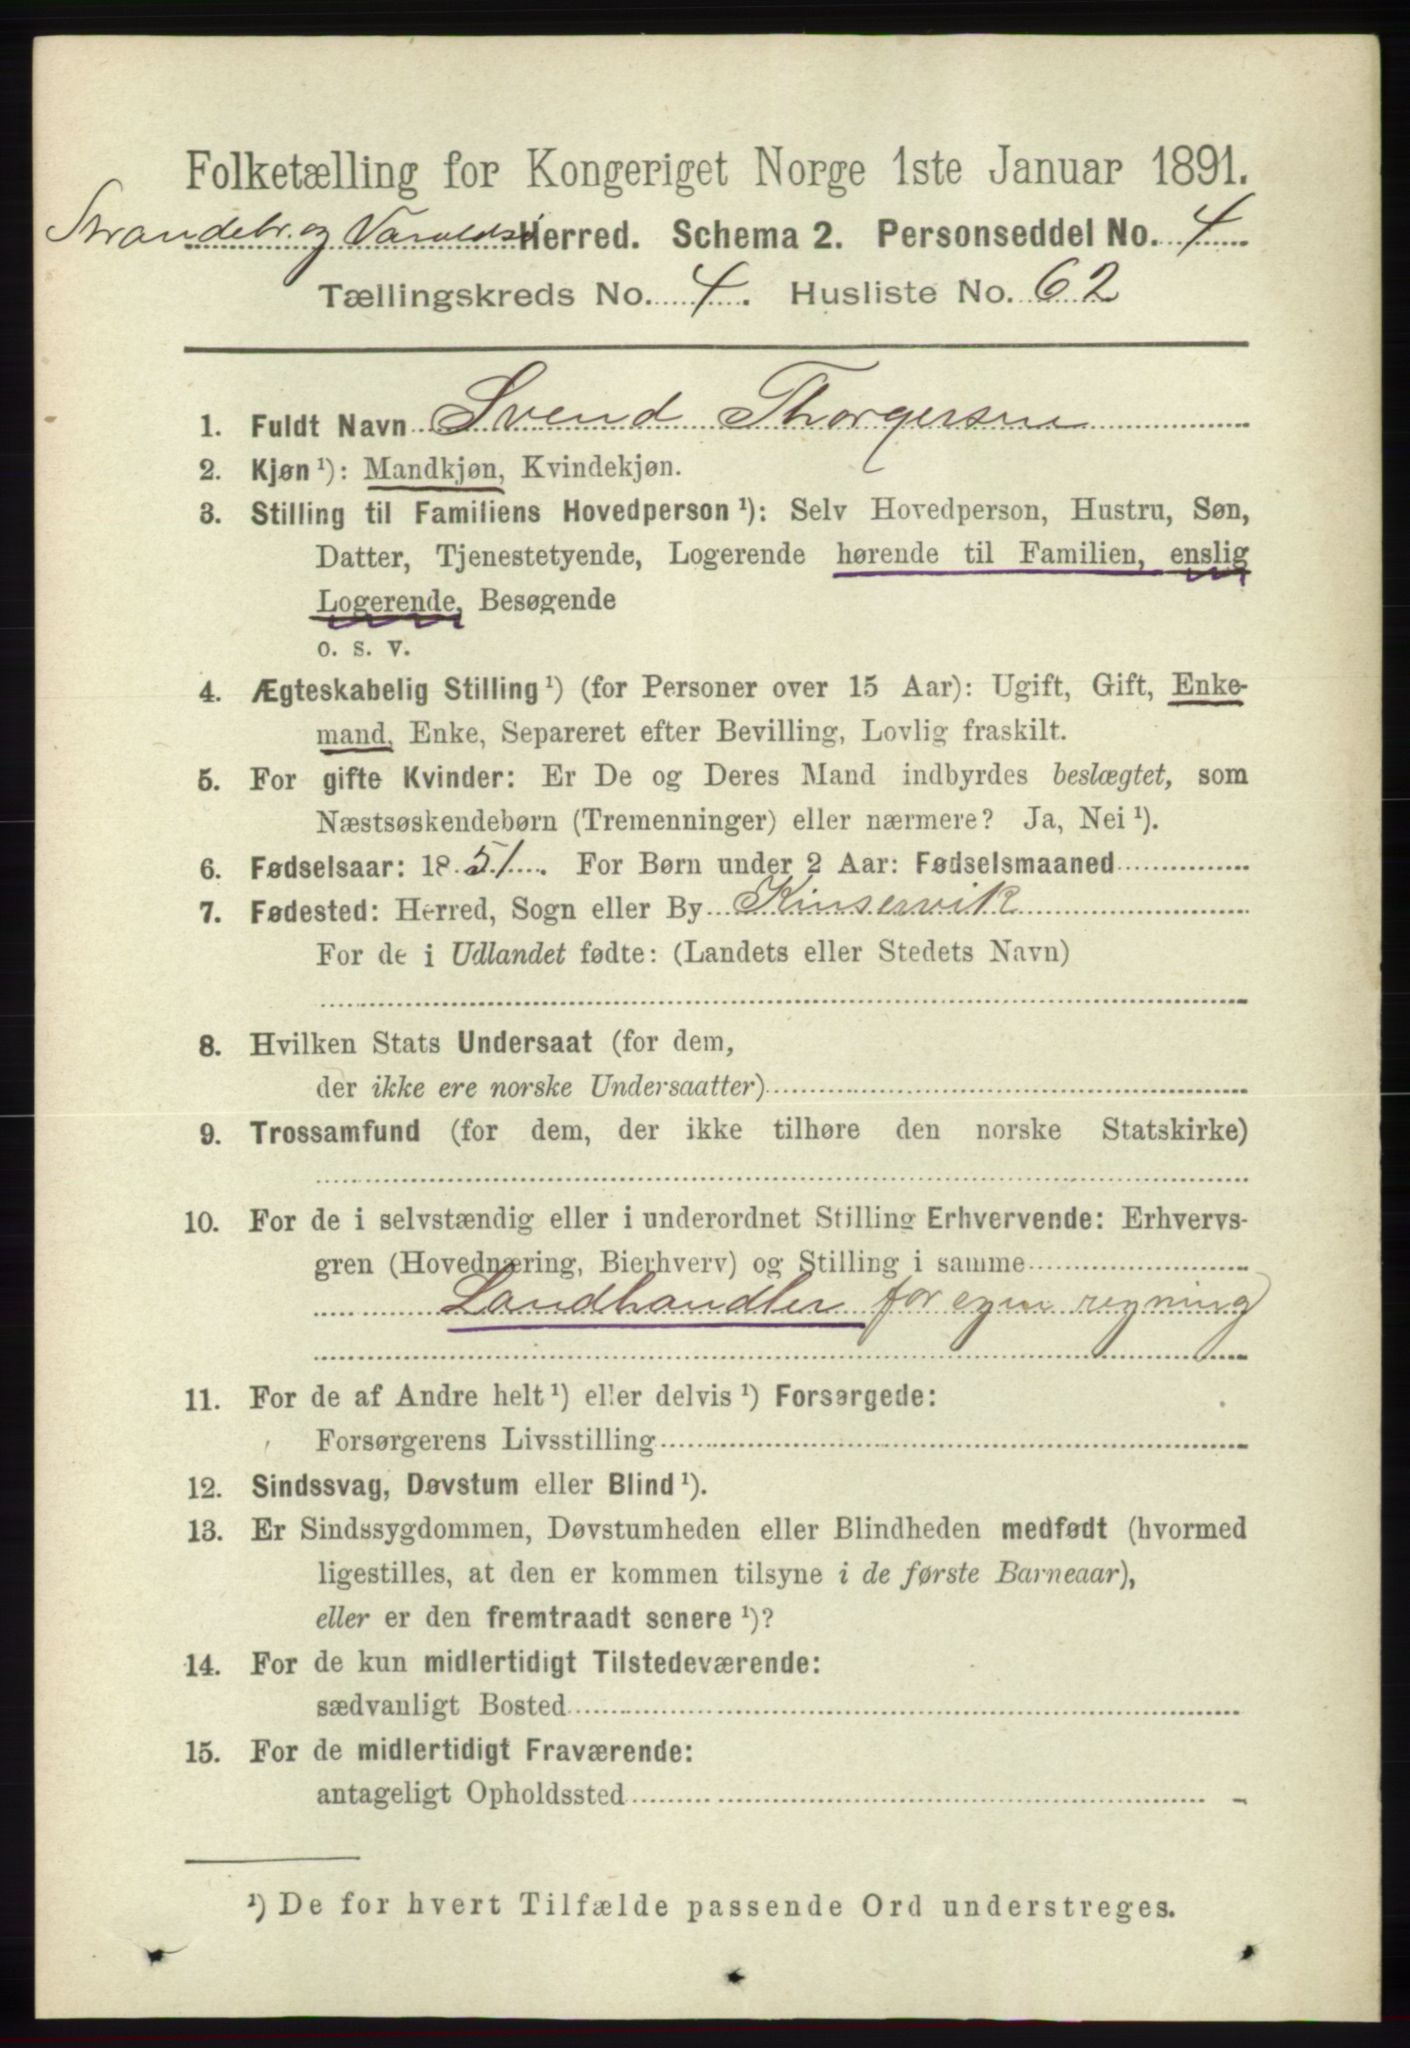 Folketælling for Kongeriget Norge 1ste Januar 1891.
Strandebr. og Varaldsø Herred. Schema 2. Personseddel No. 4
Tællingskreds No. 4. Husliste No. 62
1. Fuldt Navn Svend Thorgersen
2. Kjøn ¹): Mandkjøn, Kvindekjøn.
3. Stilling til Familiens Hovedperson ¹): Selv Hovedperson, Hustru, Søn,
Datter, Tjenestetyende, Logerende hørende til Familien, enslig
Logerende, Besøgende
o. s. v.
4. Ægteskabelig Stilling ¹) (for Personer over 15 Aar): Ugift, Gift, Enke-
mand, Enke, Separeret efter Bevilling, Lovlig fraskilt.
5. For gifte Kvinder: Er De og Deres Mand indbyrdes beslægtet, som
Næstsøskendebørn (Tremenninger) eller nærmere? Ja, Nei ¹).
6. Fødselsaar: 1851. For Børn under 2 Aar: Fødselsmaaned
7. Fødested: Herred, Sogn eller By Kinservik
For de i Udlandet fødte: (Landets eller Stedets Navn)
8. Hvilken Stats Undersaat (for dem,
der ikke ere norske Undersaatter)
9. Trossamfund (for dem, der ikke tilhøre den norske Statskirke)
10. For de i selvstændig eller i underordnet Stilling Erhvervende: Erhvervs-
gren (Hovednæring, Bierhverv) og Stilling i samme
Landhandler for egen regning
11. For de af Andre helt ¹) eller delvis ¹) Forsørgede:
Forsørgerens Livsstilling
12. Sindssvag, Døvstum eller Blind ¹).
13. Er Sindssygdommen, Døvstumheden eller Blindheden medfødt (hvormed
ligestilles, at den er kommen tilsyne i de første Barneaar),
eller er den fremtraadt senere ¹)?
14. For de kun midlertidigt Tilstedeværende:
sædvanligt Bosted
15. For de midlertidigt Fraværende:
antageligt Opholdssted
¹) De for hvert Tilfælde passende Ord understreges.